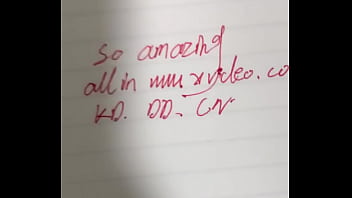 So amazing
all in www.xvideo.co
KD. DD. CN.